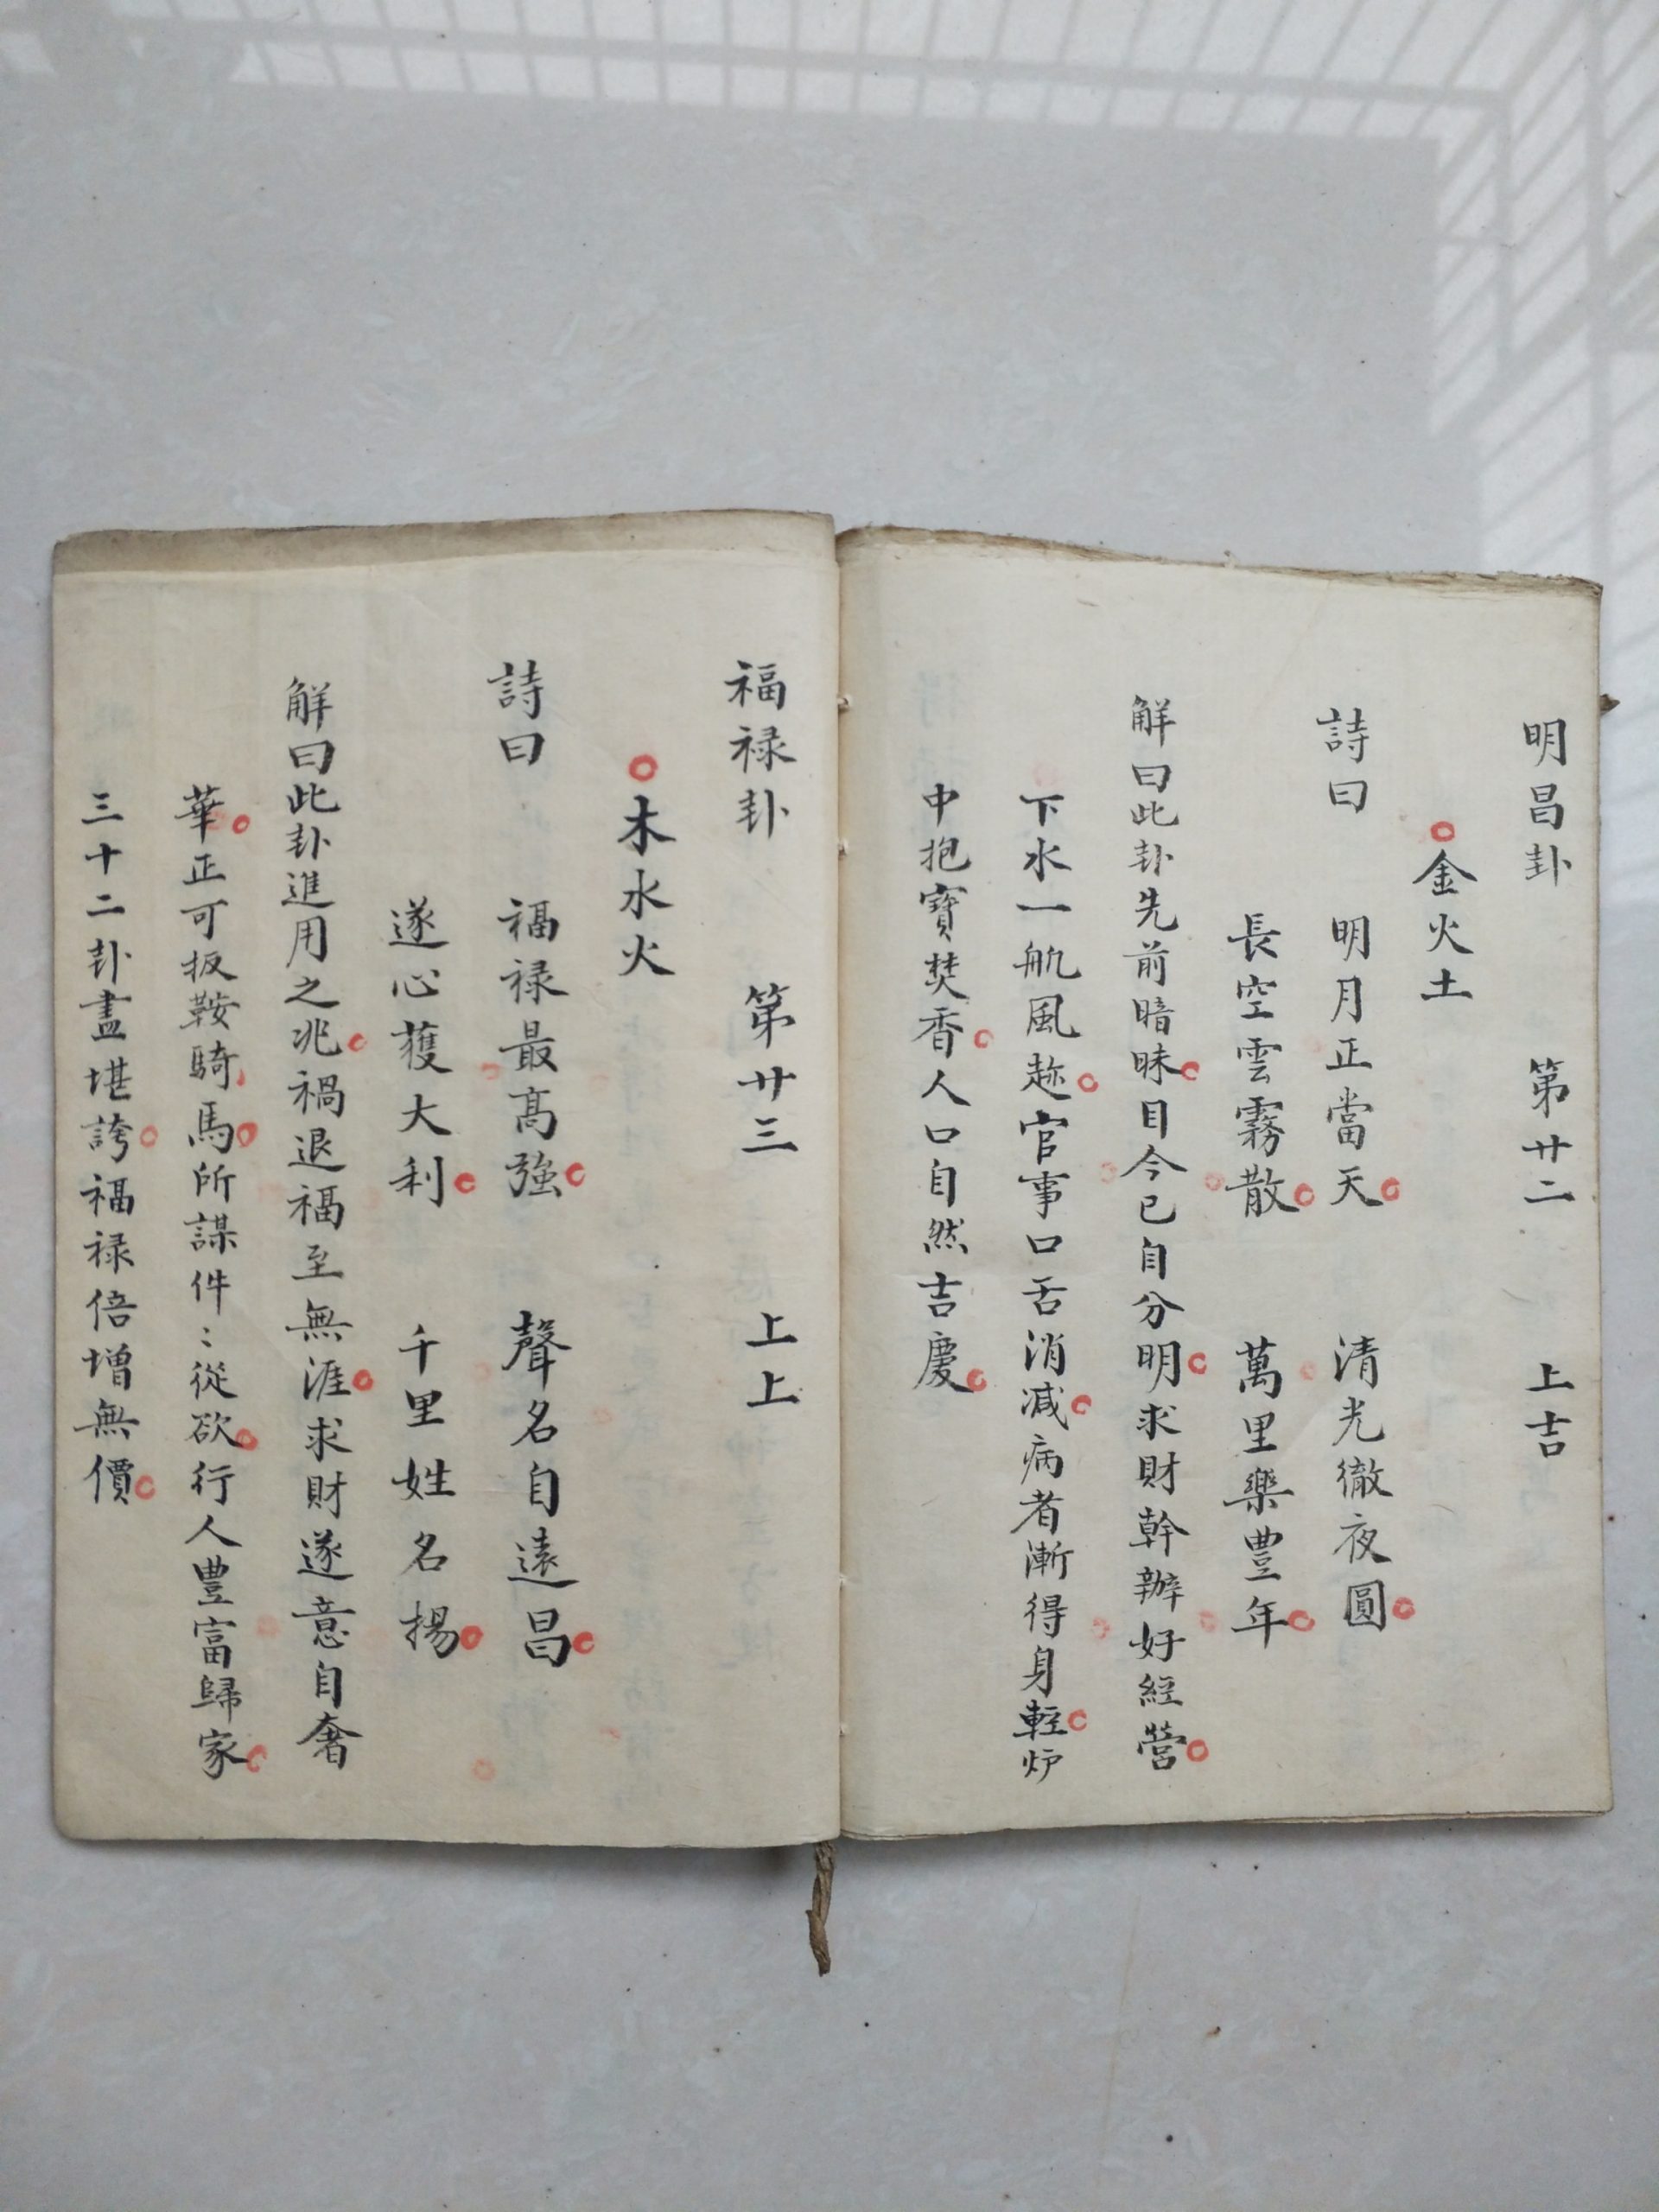 明昌卦 第廿二 上吉
金火土
詩曰 明月正當天 清光徹夜圓
長空雲霧散 萬里樂豊年
解曰此卦先前暗昧目今已自分明求財幹辦好經營
下水一航風趂官事口舌消减病者漸得身輕炉
中抱寶焚香人口自然吉慶
福禄卦 第廿三 上上
木水火
詩曰 福禄最高強 聲名自遠昌
遂心獲大利 千里姓名揚
解曰此卦進用之兆禍退福至無涯求財遂意自奢
華正可扳鞍騎馬所謀件〻從欲行人豊富歸家
三十二卦盡堪誇福禄倍增無價